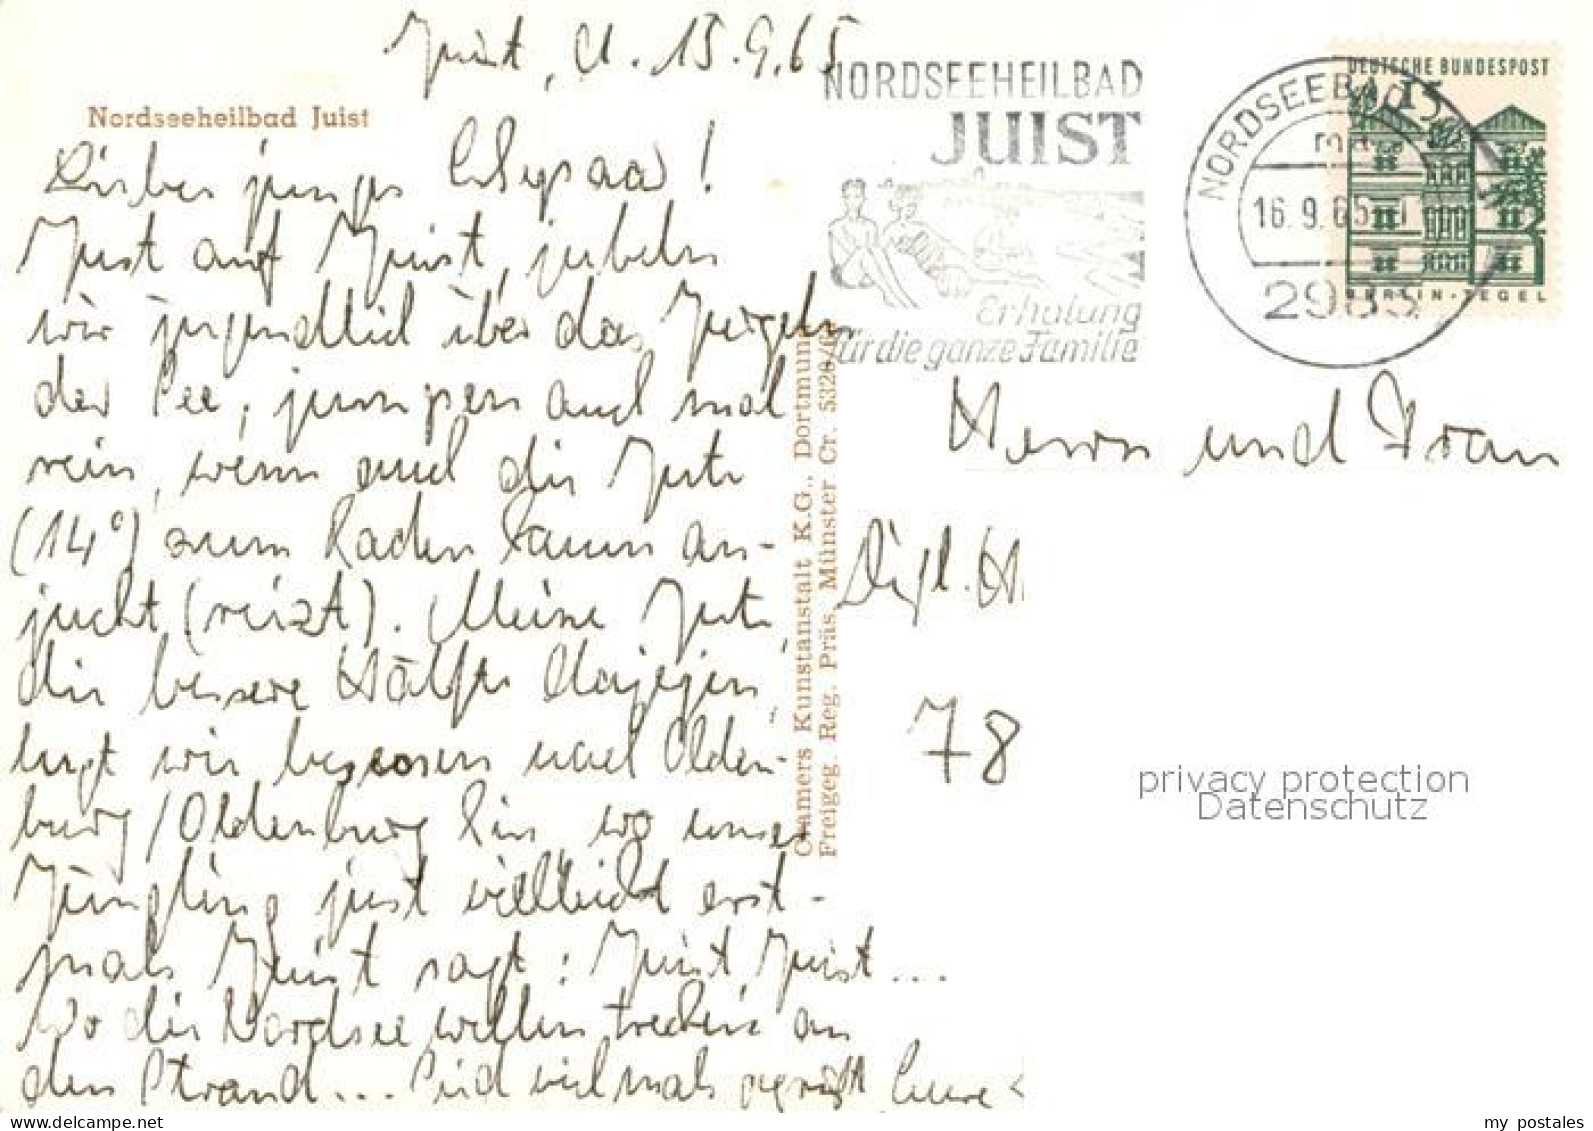 Juist, d. 15.9.65
Nordseeheilbad Juist
Liebes junges Ehepaar!
Just auf Juist, jubeln
wir jugendlich über das Jurgeln
der See, jumpen auch mal
rein, wenn auch die Jute
(14°) zum Baden kaum an-
jucht (reizt). Meine Jute,
die bessere Hälfte dajegen,
wir besonnen nach Olden-
burg/Oldenburg hin, wo unser
Jüngling just vielleicht erst-
mals Juist sagt: Juist Juist...
Wo die Nordsee wellen an
den Strand... Seid vielmals gegrüßt
NORDSEEHEILBAD
JUIST
Erholung
für die ganze Familie
NORDSEEBAD
16.9.65
2983
DEUTSCHE BUNDESPOST
15
BERLIN-TEGEL
Cramers Kunstanstalt K.G., Dortmund
Freigeg. Reg. Präs. Münster Cr. 5320/6
Herrn und Frau
Dipl.
78
privacy protection
Datenschutz
my_postales